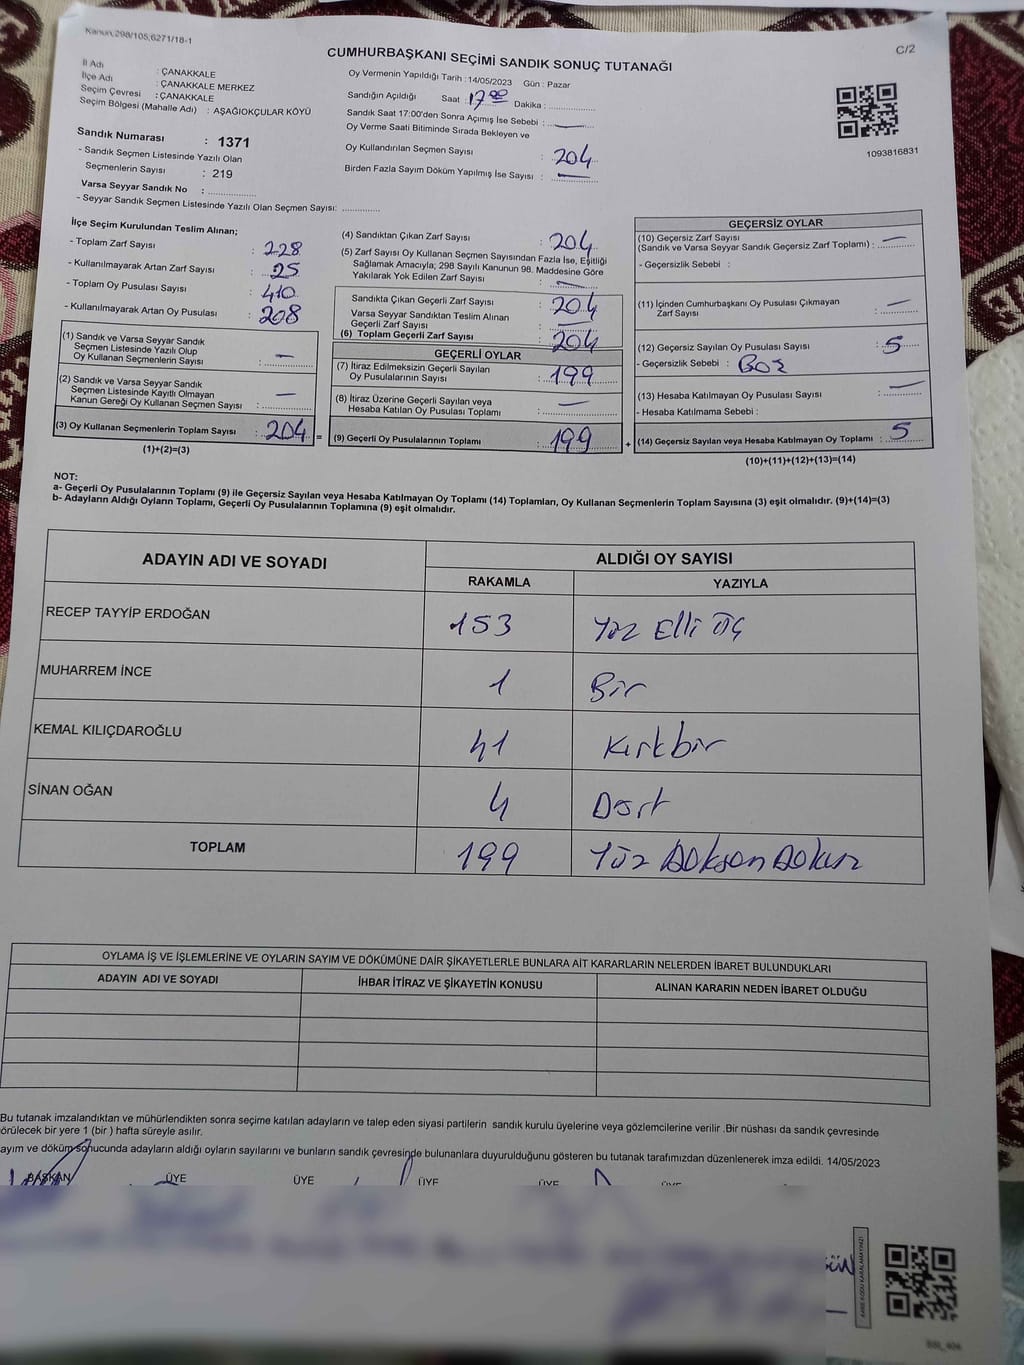 Kanun;298/105;6271/18-1
C/2
CUMHURBAŞKANI SEÇİMİ SANDIK SONUÇ TUTANAĞI
İl Adı : ÇANAKKALE
İlçe Adı : ÇANAKKALE MERKEZ
Seçim Çevresi : ÇANAKKALE
Seçim Bölgesi (Mahalle Adı) : AŞAĞIOKÇULAR KÖYÜ
Sandık Numarası : 1371
- Sandık Seçmen Listesinde Yazılı Olan
Seçmenlerin Sayısı : 219
Varsa Seyyar Sandık No : ..............
- Seyyar Sandık Seçmen Listesinde Yazılı Olan Seçmen Sayısı: ..............
Oy Vermenin Yapıldığı Tarih : 14/05/2023 Gün : Pazar
Sandığın Açıldığı Saat : 17:00 Dakika : ..............
Sandık Saat 17:00'den Sonra Açımış İse Sebebi : —
Oy Verme Saati Bitiminde Sırada Bekleyen ve
Oy Kullandırılan Seçmen Sayısı : 204
Birden Fazla Sayım Döküm Yapılmış İse Sayısı : —
1093816831
İlçe Seçim Kurulundan Teslim Alınan;
- Toplam Zarf Sayısı : 228
- Kullanılmayarak Artan Zarf Sayısı : 25
- Toplam Oy Pusulası Sayısı : 410
- Kullanılmayarak Artan Oy Pusulası : 208
(1) Sandık ve Varsa Seyyar Sandık
Seçmen Listesinde Yazılı Olup
Oy Kullanan Seçmenlerin Sayısı : —
(2) Sandık ve Varsa Seyyar Sandık
Seçmen Listesinde Kayıtlı Olmayan
Kanun Gereği Oy Kullanan Seçmen Sayısı : —
(3) Oy Kullanan Seçmenlerin Toplam Sayısı : 204 =
(1)+(2)=(3)
(4) Sandıktan Çıkan Zarf Sayısı : 204
(5) Zarf Sayısı Oy Kullanan Seçmen Sayısından Fazla İse, Eşitliği
Sağlamak Amacıyla; 298 Sayılı Kanunun 98. Maddesine Göre
Yakılarak Yok Edilen Zarf Sayısı : —
Sandıkta Çıkan Geçerli Zarf Sayısı : 204
Varsa Seyyar Sandıktan Teslim Alınan
Geçerli Zarf Sayısı : —
(6) Toplam Geçerli Zarf Sayısı : 204
GEÇERLİ OYLAR
(7) İtiraz Edilmeksizin Geçerli Sayılan
Oy Pusulalarının Sayısı : 199
(8) İtiraz Üzerine Geçerli Sayılan veya
Hesaba Katılan Oy Pusulası Toplamı : —
(9) Geçerli Oy Pusulalarının Toplamı : 199 +
GEÇERSİZ OYLAR
(10) Geçersiz Zarf Sayısı
(Sandık ve Varsa Seyyar Sandık Geçersiz Zarf Toplamı) : —
- Geçersizlik Sebebi :
(11) İçinden Cumhurbaşkanı Oy Pusulası Çıkmayan
Zarf Sayısı : —
(12) Geçersiz Sayılan Oy Pusulası Sayısı : 5
- Geçersizlik Sebebi : Boş
(13) Hesaba Katılmayan Oy Pusulası Sayısı : —
- Hesaba Katılmama Sebebi :
(14) Geçersiz Sayılan veya Hesaba Katılmayan Oy Toplamı : 5
(10)+(11)+(12)+(13)=(14)
NOT:
a- Geçerli Oy Pusulalarının Toplamı (9) ile Geçersiz Sayılan veya Hesaba Katılmayan Oy Toplamı (14) Toplamları, Oy Kullanan Seçmenlerin Toplam Sayısına (3) eşit olmalıdır. (9)+(14)=(3)
b- Adayların Aldığı Oyların Toplamı, Geçerli Oy Pusulalarının Toplamına (9) eşit olmalıdır.
ADAYIN ADI VE SOYADI
ALDIĞI OY SAYISI
RAKAMLA YAZIYLA
RECEP TAYYİP ERDOĞAN 153 Yüz Elli Üç
MUHARREM İNCE 1 Bir
KEMAL KILIÇDAROĞLU 41 Kırkbir
SİNAN OĞAN 4 Dört
TOPLAM 199 Yüz Doksan Dokuz
OYLAMA İŞ VE İŞLEMLERİNE VE OYLARIN SAYIM VE DÖKÜMÜNE DAİR ŞİKAYETLERLE BUNLARA AİT KARARLARIN NELERDEN İBARET BULUNDUKLARI
ADAYIN ADI VE SOYADI İHBAR İTİRAZ VE ŞİKAYETİN KONUSU ALINAN KARARIN NEDEN İBARET OLDUĞU
Bu tutanak imzalandıktan ve mühürlendikten sonra seçime katılan adayların ve talep eden siyasi partilerin sandık kurulu üyelerine veya gözlemcilerine verilir .Bir nüshası da sandık çevresinde
örülecek bir yere 1 (bir ) hafta süreyle asılır.
ayım ve döküm sonucunda adayların aldığı oyların sayılarını ve bunların sandık çevresinde bulunanlara duyurulduğunu gösteren bu tutanak tarafımızdan düzenlenerek imza edildi. 14/05/2023
BAŞKAN ÜYE ÜYE ÜYE ÜYE ÜYE